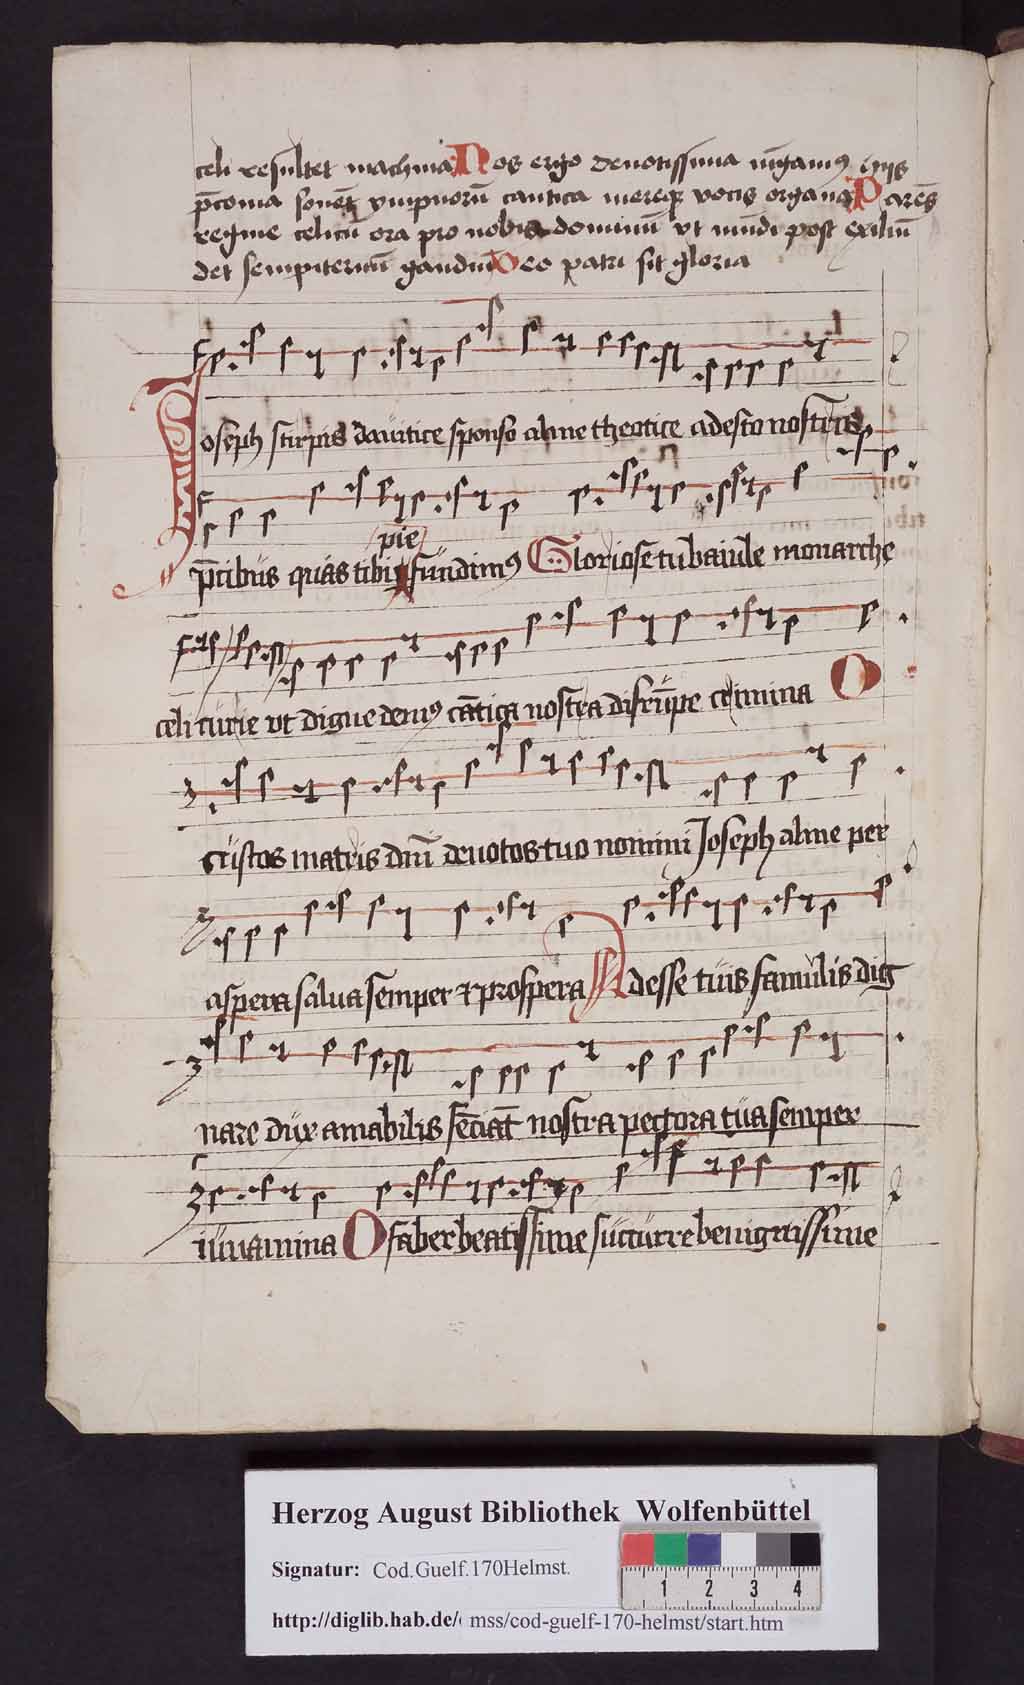 celi resultet machina Nos ergo deuotissima
p̄conia sonēt ympnorū cantica vocis organa
regine celicū ora pro nobis dominū vt mūdi post exiliū
det sempiternū gaudiū Deo patri sit gloria
Joseph stirpis dauitice sponso alme theotice adesto nostris
pie
p̄cibus quas tibi fundimꝰ Gloriose tu baiule monarche
celi curie vt digne demꝰ cātica nostra disrūpe crimina O
custos matris dn̄i deuotos tuo nomini Joseph alme per
aspera salua semper et prospera Adesse tuis famulis dig
nare dux amabilis nostra pectora tua semper
iuuamina O faber beatissime succurre benignissime
Herzog August Bibliothek Wolfenbüttel
Signatur: Cod.Guelf.170Helmst.
1 2 3 4
http://diglib.hab.de/ mss/cod-guelf-170-helmst/start.htm